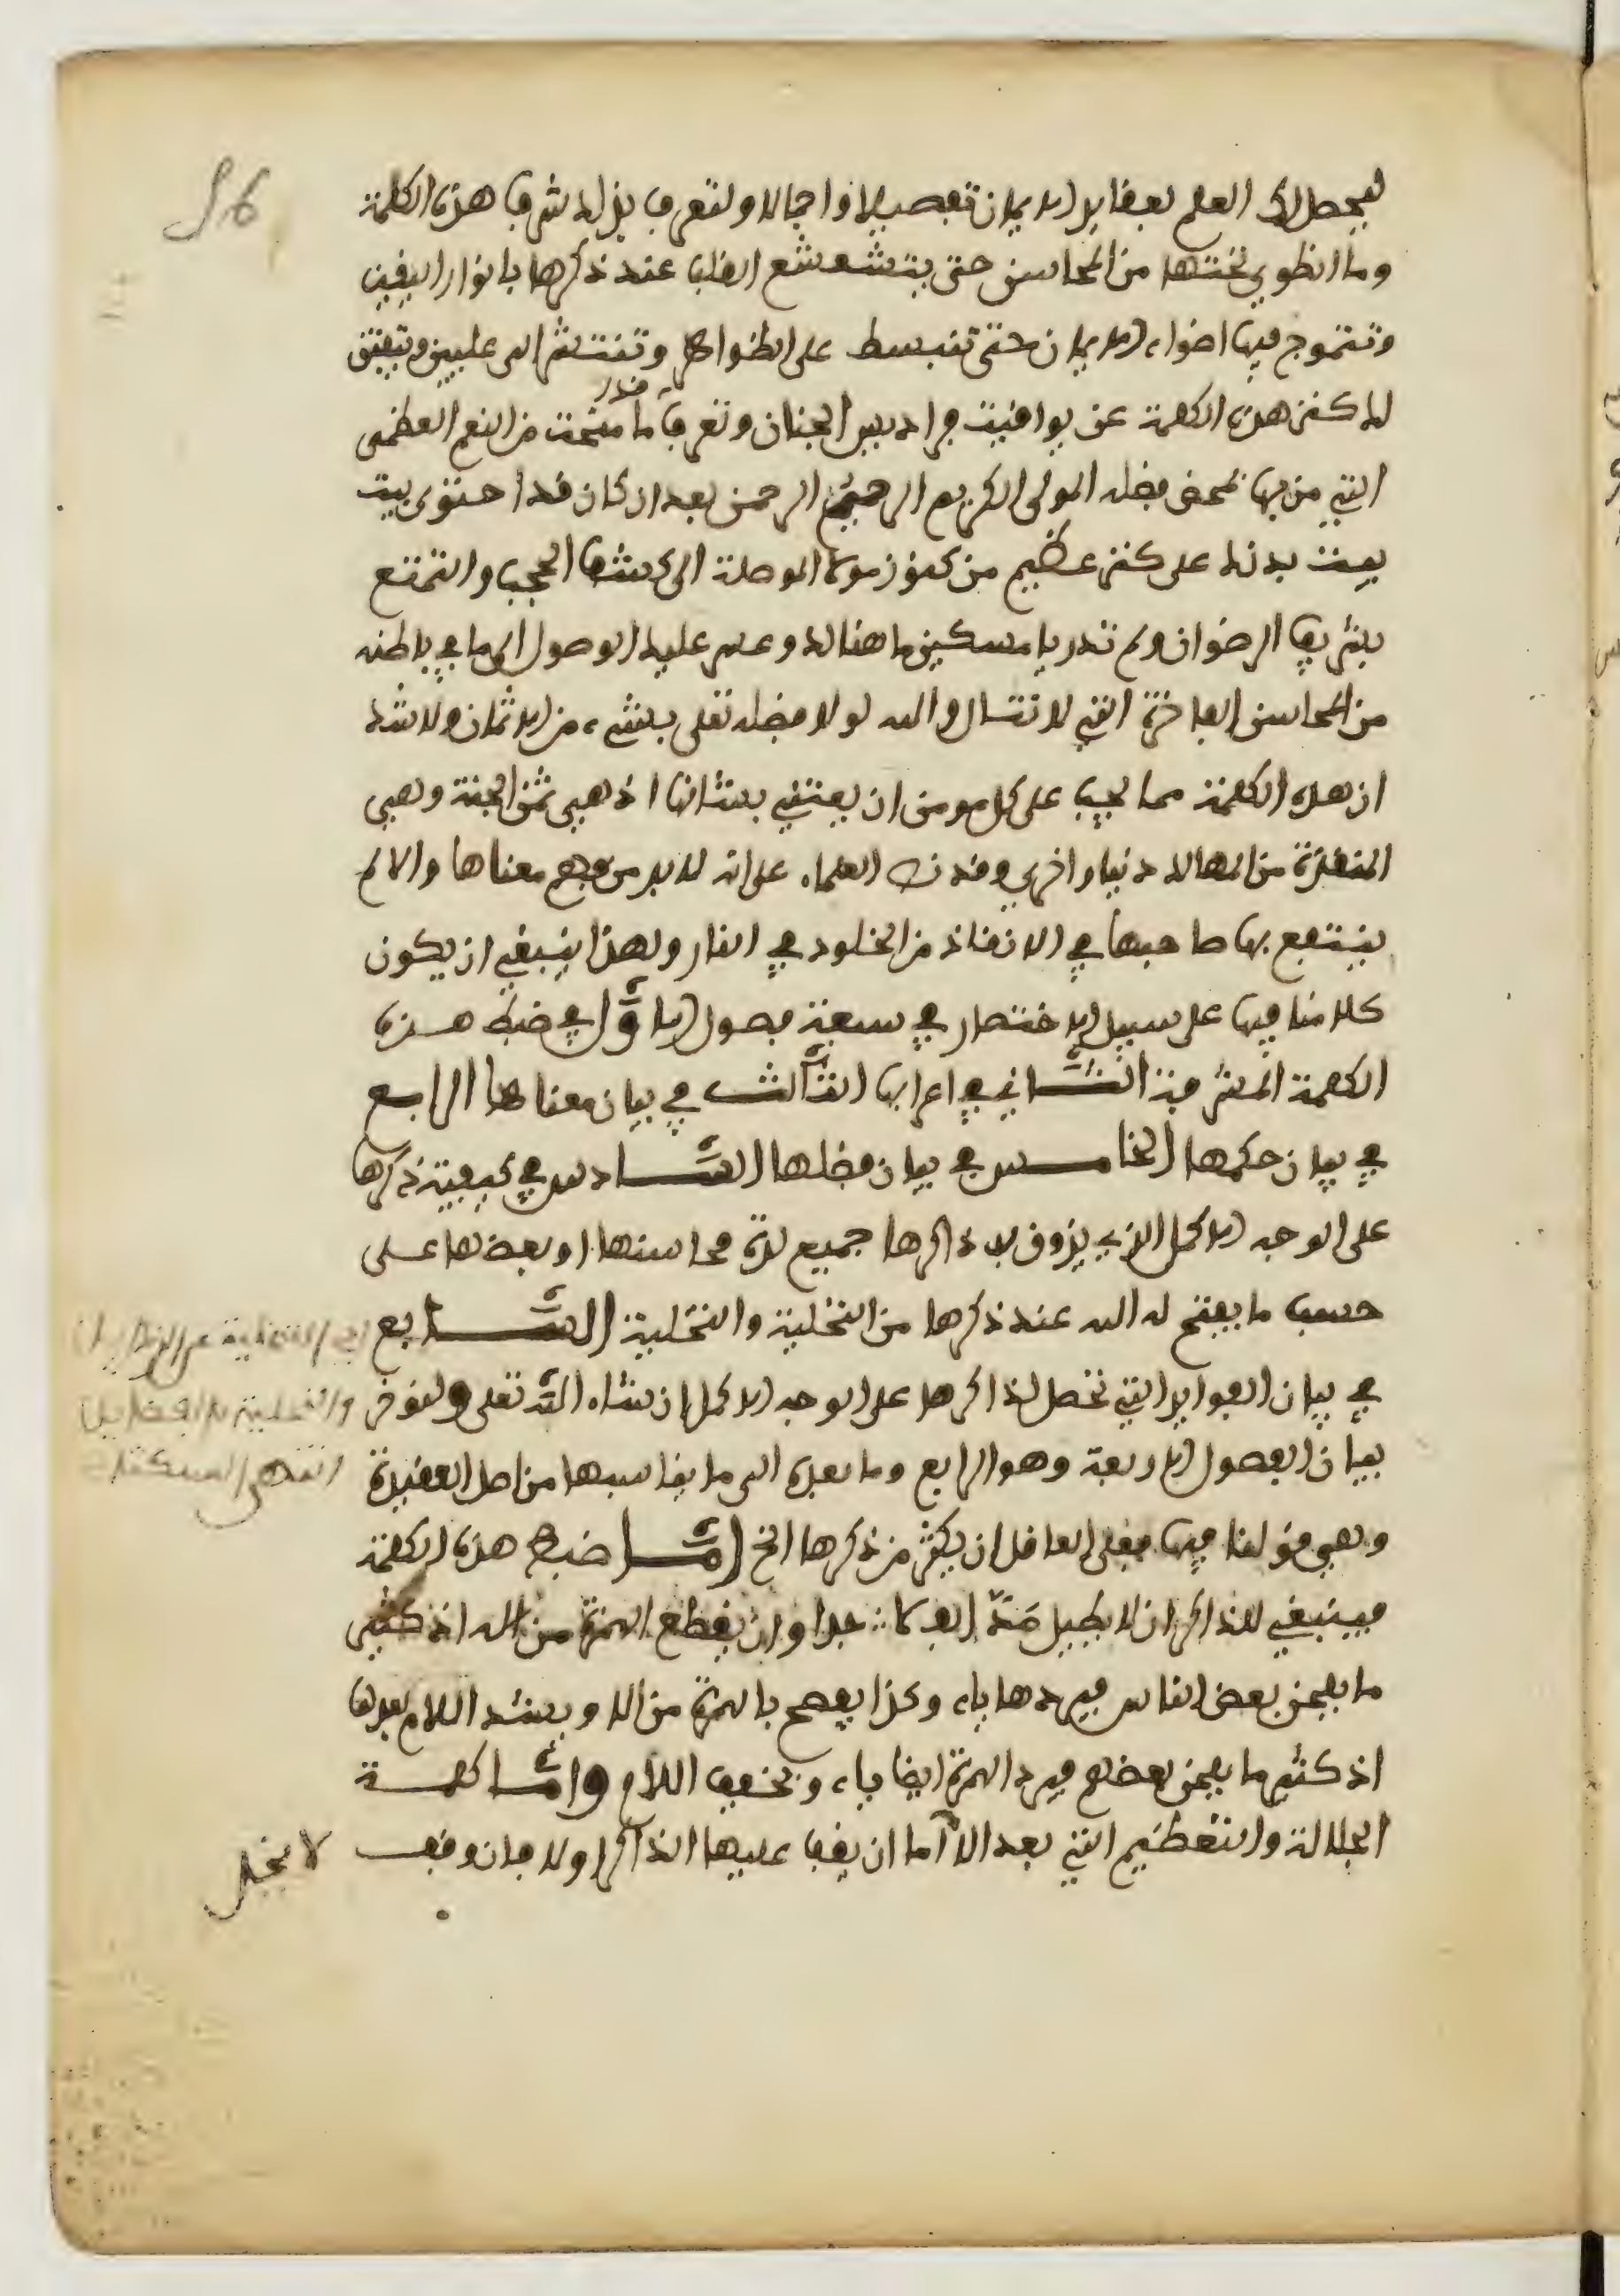 96
ليحصل لك العلم بعقايد الايمان تفصيلا واجمالا ولتعرف بذلك شرف هذه الكلمة
وما انطوى تحتها من المحاسن حتى يتشعشع القلب عند ذكرها بانوار اليقين
وتتموج فيها اضواء الايمان حتى تنبسط على الظواهر وتنتشر الى عليين ويتفتق
لك كنز هذه الكلمة عن يواقيت فراديس الجنان وتعرف قدر ما منحت من النعم العظمى
التي من بها بمحض فضله المولى الكريم الرحيم الرحمن بعد ان كان قد احتوى بيت
بدنك على كنز عظيم من كنوز مولاك الموصلة الى كشف الحجب والتمتع
بشريف الرضوان ولم تدر يا مسكين ما هنالك وعسر عليك الوصول الى ما في باطنه
من المحاسن الفاخرة التي لا تنال والله لولا فضله تعلى بشيء من الاثمان ولا شك
ان هذه الكلمة مما يجب على كل مومن ان يعتني بشانها اذ هي ثمن الجنة وهي
المنقذة من المهالك دنيا واخرى وقد نص العلماء على انه لا بد من فهم معناها والا لم
ينتفع بها صاحبها في الانقاذ من الخلود في النار ولهذا ينبغي ان يكون
كلامنا فيها على سبيل الاختصار في سبعة فصول الاوّل في ضبط هذه
الكلمة المشرفة الثَّاني في اعرابها الثَّالث في بيان معناها الرابع
في بيان حكمها الخامس في بيان فضلها السَّادس في كيفية ذكرها
على الوجه الاكمل الذي يذوق به ذاكرها جميع لذة محاسنها او بعضها على
حسب ما يفتح له الله عند ذكرها من التخلية والتحلية السَّابع
في بيان الفوايد التي تحصل لذاكرها على الوجه الاكمل ان شاء الله تعلى ولنوخر
بيان الفصول الاربعة وهو الرابع وما بعده الى ما يناسبها من اصل العقيدة
وهي قولنا فيها فعلى العاقل ان يكثر من ذكرها الخ امَّا ضبط هذه الكلمة
فينبغي للذاكر ان لا يطيل مَدَّ الف لا جدا وان يقطع الهمزة من اله اذ كثير
ما يلحن بعض الناس فيردها ياء وكذا يفصح بالهمزة من الا ويشدد اللام بعدها
اذ كثير ما يلحن بعضهم فيرد الهمزة ايضا ياء ويخفف اللام وامَّا كلمة
الجلالة والتعظيم التي بعد الا اما ان يقف عليها الذاكر اولا فان وقف
لا يخل
اي التخلية عن الرذايل
والتحلية بالفضايل
انتهى